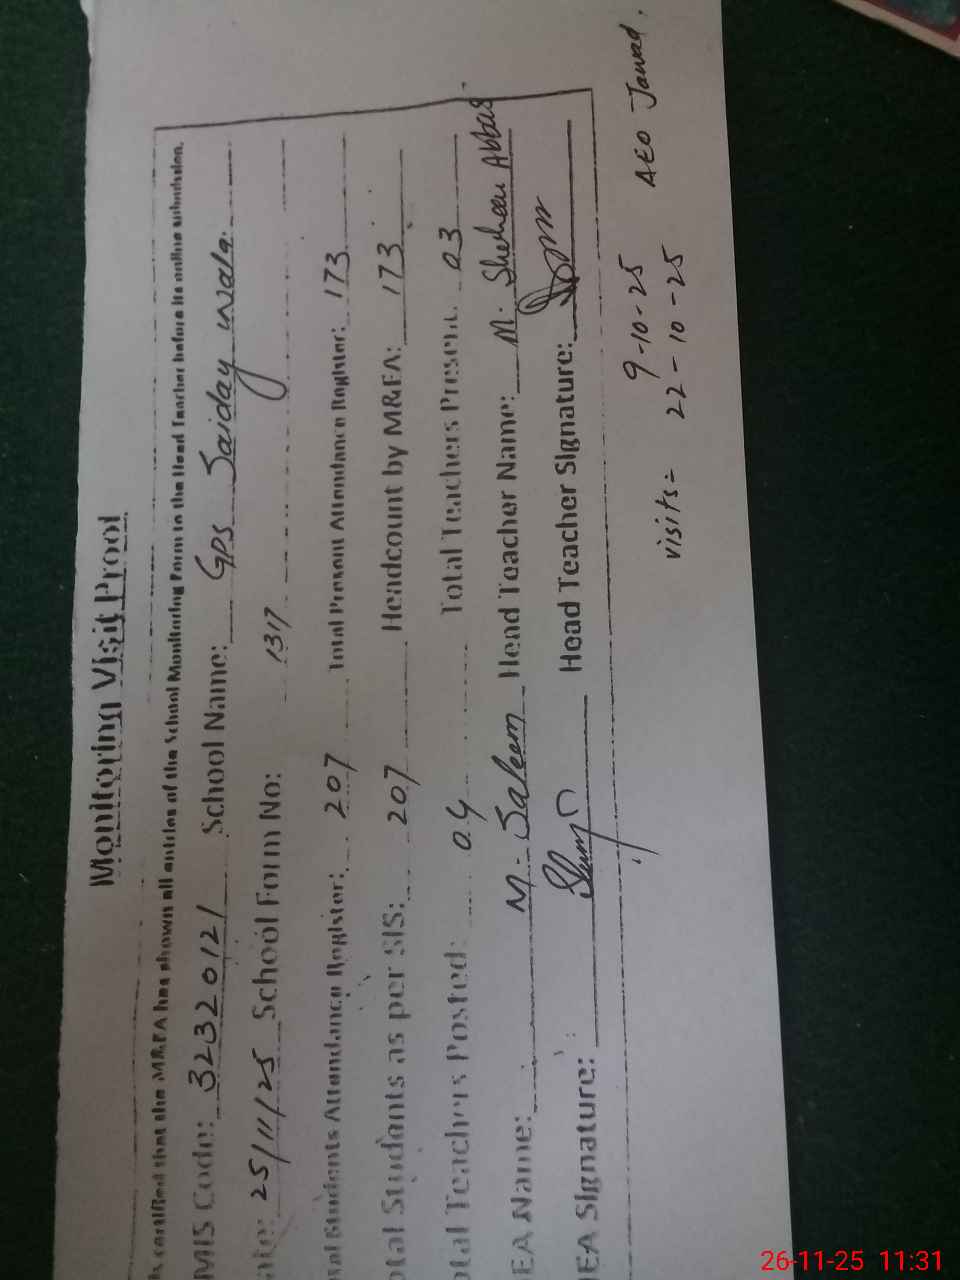 Monitoring Visit Proof
is certified that the M&EA has shown all entries of the School Monitoring Form to the Head Teacher before its online submission.
MIS Code: 32320121 School Name: GPS Saiday wala.
ate: 25/11/25 School Form No: 1317
tal Students Attendance Register: 207 Total Present Attendance Register: 173
otal Students as per SIS: 207 Headcount by M&EA: 173
otal Teachers Posted: 04 Total Teachers Present: 03
EA Name: M. Saleem Head Teacher Name: M. Shaheen Abbas
EA Signature: Head Teacher Signature:
9-10-25
visits= 22-10-25 AEO Jawad.
26-11-25 11:31